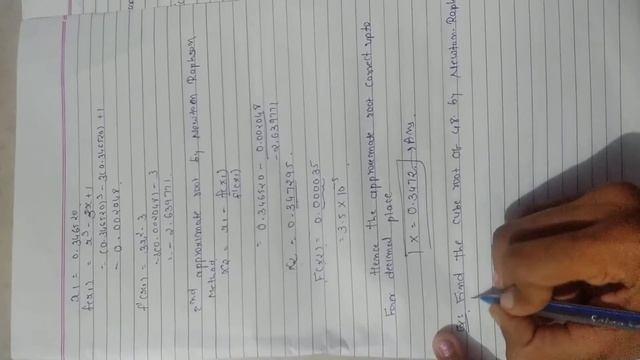 x1 = 0.346520
f(x1) = x³ - 3x + 1
= (0.346520)³ - 3(0.346520) + 1
= 0.002048.
f'(x1) = 3x² - 3
= 3(0.002048) - 3
= - 2.639771.
2nd approximate root by Newton Raphson
Method
x2 = x1 - f(x1)/f'(x1)
= 0.346520 - 0.002048/-2.639771
x2 = 0.347295.
f(x2) = 0.000035
= 3.5 x 10⁻⁵
Hence the approximate root correct upto
Four decimal place
x = 0.3472 Ans.
Find the cube root of 48 by Newton-Raph